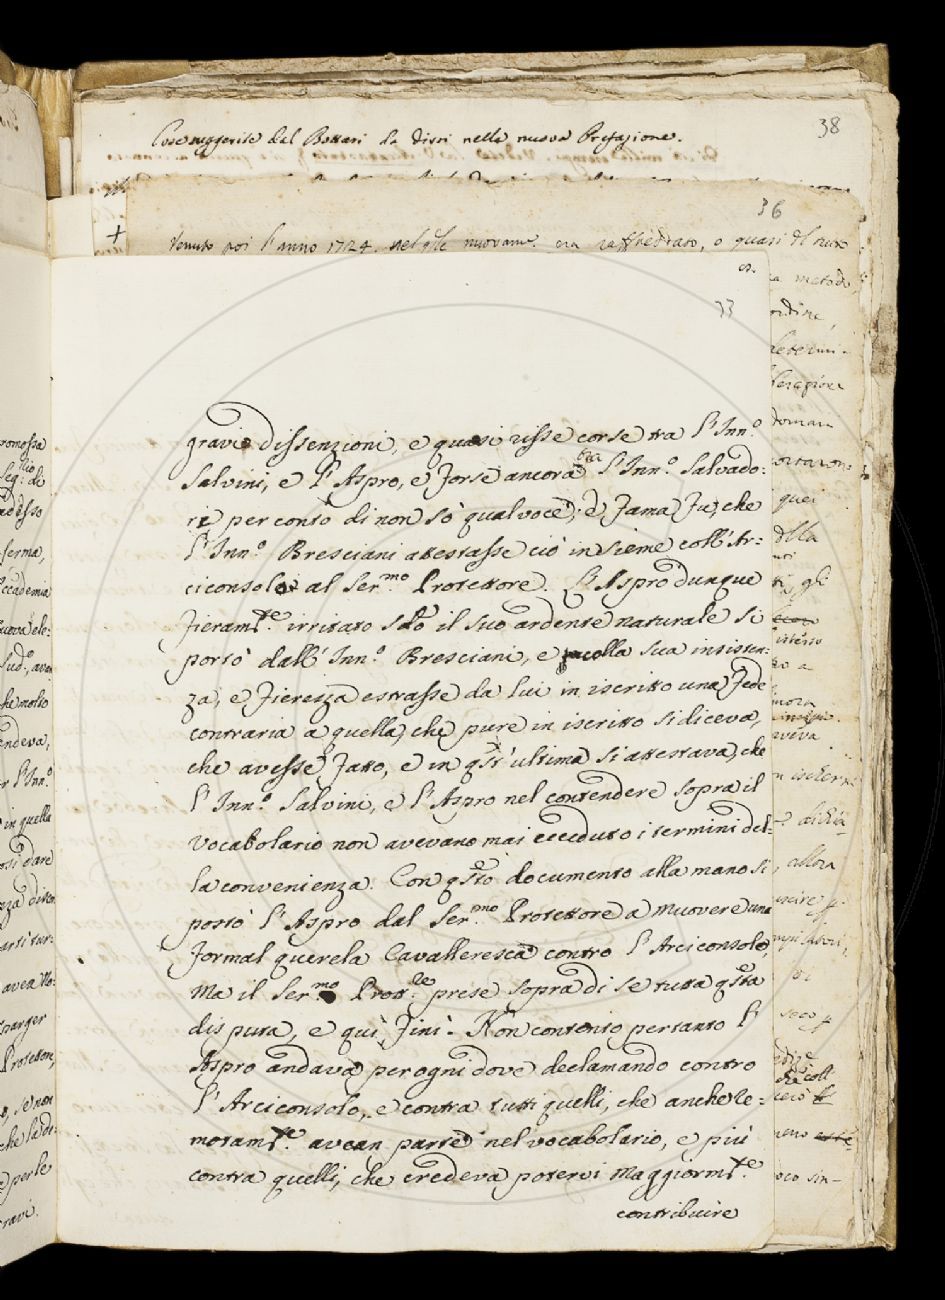 38
Cose suggerite dal Bottari da dirsi nella nuova Prefazione.
36
Venuto poi l'anno 1724. nel qle nuovam. era raffreddato, o quasi del tutto
8.
33
gravi dissenzioni, e quasi risse corse tra l'Inn.º
Salvini, e l'Aspro, e forse ancora tra l'Inn.º Salvado:
ri per conto di non sò qual voce; e fama fu, che
l'Inn.º Bresciani attestasse ciò insieme coll'Ar:
ciconsolo al Ser.mo Protettore. L'Aspro dunque
fieram.te irritato s.do il suo ardente naturale si
portò dall'Inn.º Bresciani, e colla sua insisten:
za, e fierezza estrasse da lui in iscritto una fede
contraria a quella, che pure in iscritto si diceva,
che avesse fatto, e in qst'ultima si attestava, che
l'Inn.º Salvini, e l'Aspro nel contendere sopra il
Vocabolario non avevano mai ecceduto i termini del:
la convenienza. Con qsto documento alla mano si
portò l'Aspro dal Ser.mo Protettore a muovere una
formal querela Cavalleresca contro l'Arciconsolo,
Ma il Ser.mo Prott.le prese sopra di se tutta qsta
disputa, e qui finì. Non contento pertanto l'
Aspro andava per ogni dove declamando contro
l'Arciconsolo, e contra tutti quelli, che anche re:
motam.te avean parte nel vocabolario, e più
contra quelli, che credeva potervi maggiorm.te
contribuire
metodo
ordine,
determi-
domani
portarono
quei
della
gli
istesso
a
allora
poco sin-
romossa
Seg.rio di
adesso
ferma,
Accademia
nuova ele:
Sud.º, aven
che molto
endeva,
r l'Inn.º
in quella
dare
avea No:
sparger
Protettore,
o, se non
che la di:
e per le
ravi.